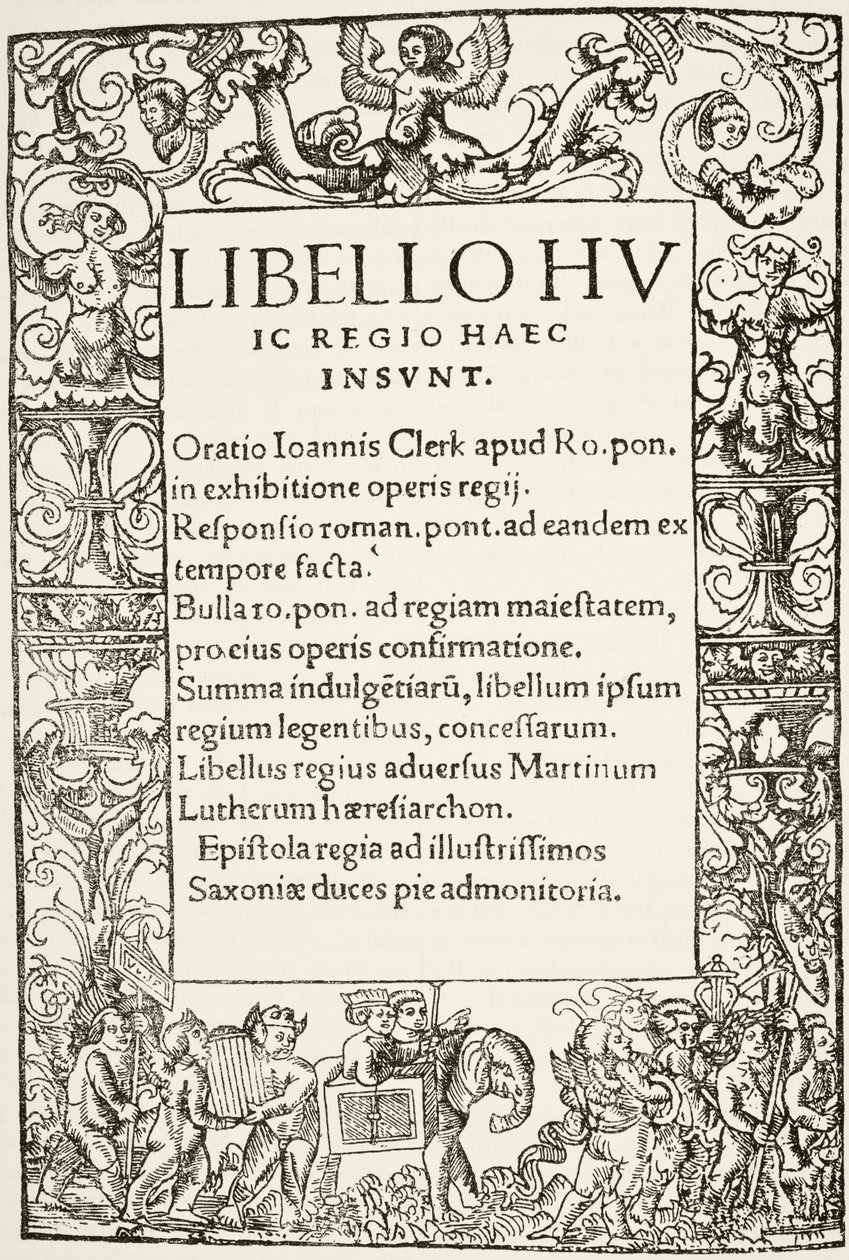 LIBELLO HV
IC REGIO HAEC
INSVNT.
Oratio Ioannis Clerk apud Ro.pon.
in exhibitione operis regij.
Reſponſio roman.pont.ad eandem ex
tempore facta.
Bulla ro.pon. ad regiam maieſtatem,
pro eius operis confirmatione.
Summa indulgẽtiarũ, libellum ipſum
regium legentibus, conceſſarum.
Libellus regius aduerſus Martinum
Lutherum hæreſiarchon.
Epiſtola regia ad illuſtriſſimos
Saxoniæ duces pie admonitoria.